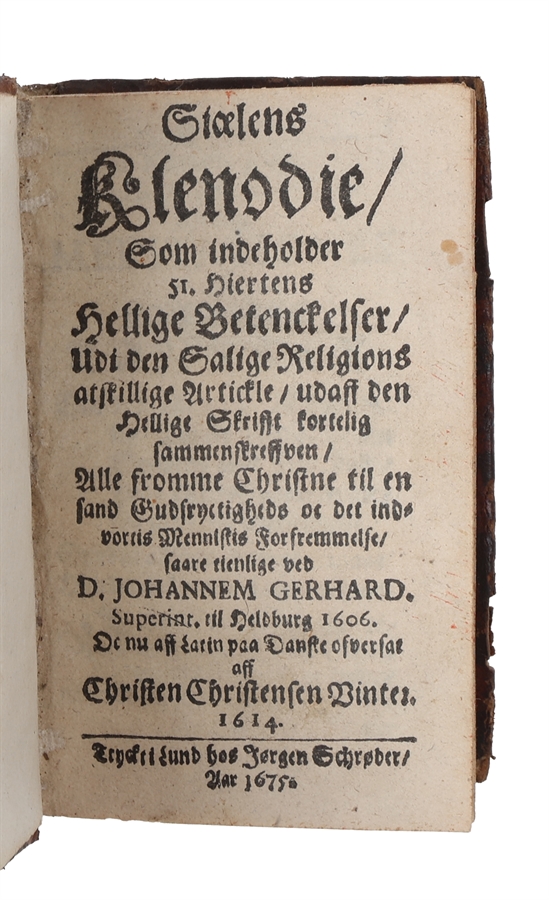 Siœlens
Klenodie/
Som indeholder
51. Hiertens
Hellige Betenckelser/
Udi den Salige Religions
atskillige Artickle/ udaff den
Hellige Skrifft kortelig
sammenskreffven/
Alle fromme Christne til en
sand Gudfryctigheds oc det ind-
vortis Menniskis Forfremmelse/
saare tienlige ved
D. JOHANNEM GERHARD.
Superint. til Heldburg 1606.
Oc nu aff Latin paa Danske ofversat
aff
Christen Christensen Vinter.
1614.
Tryckt i Lund hos Jørgen Schrøder/
Aar 1675.